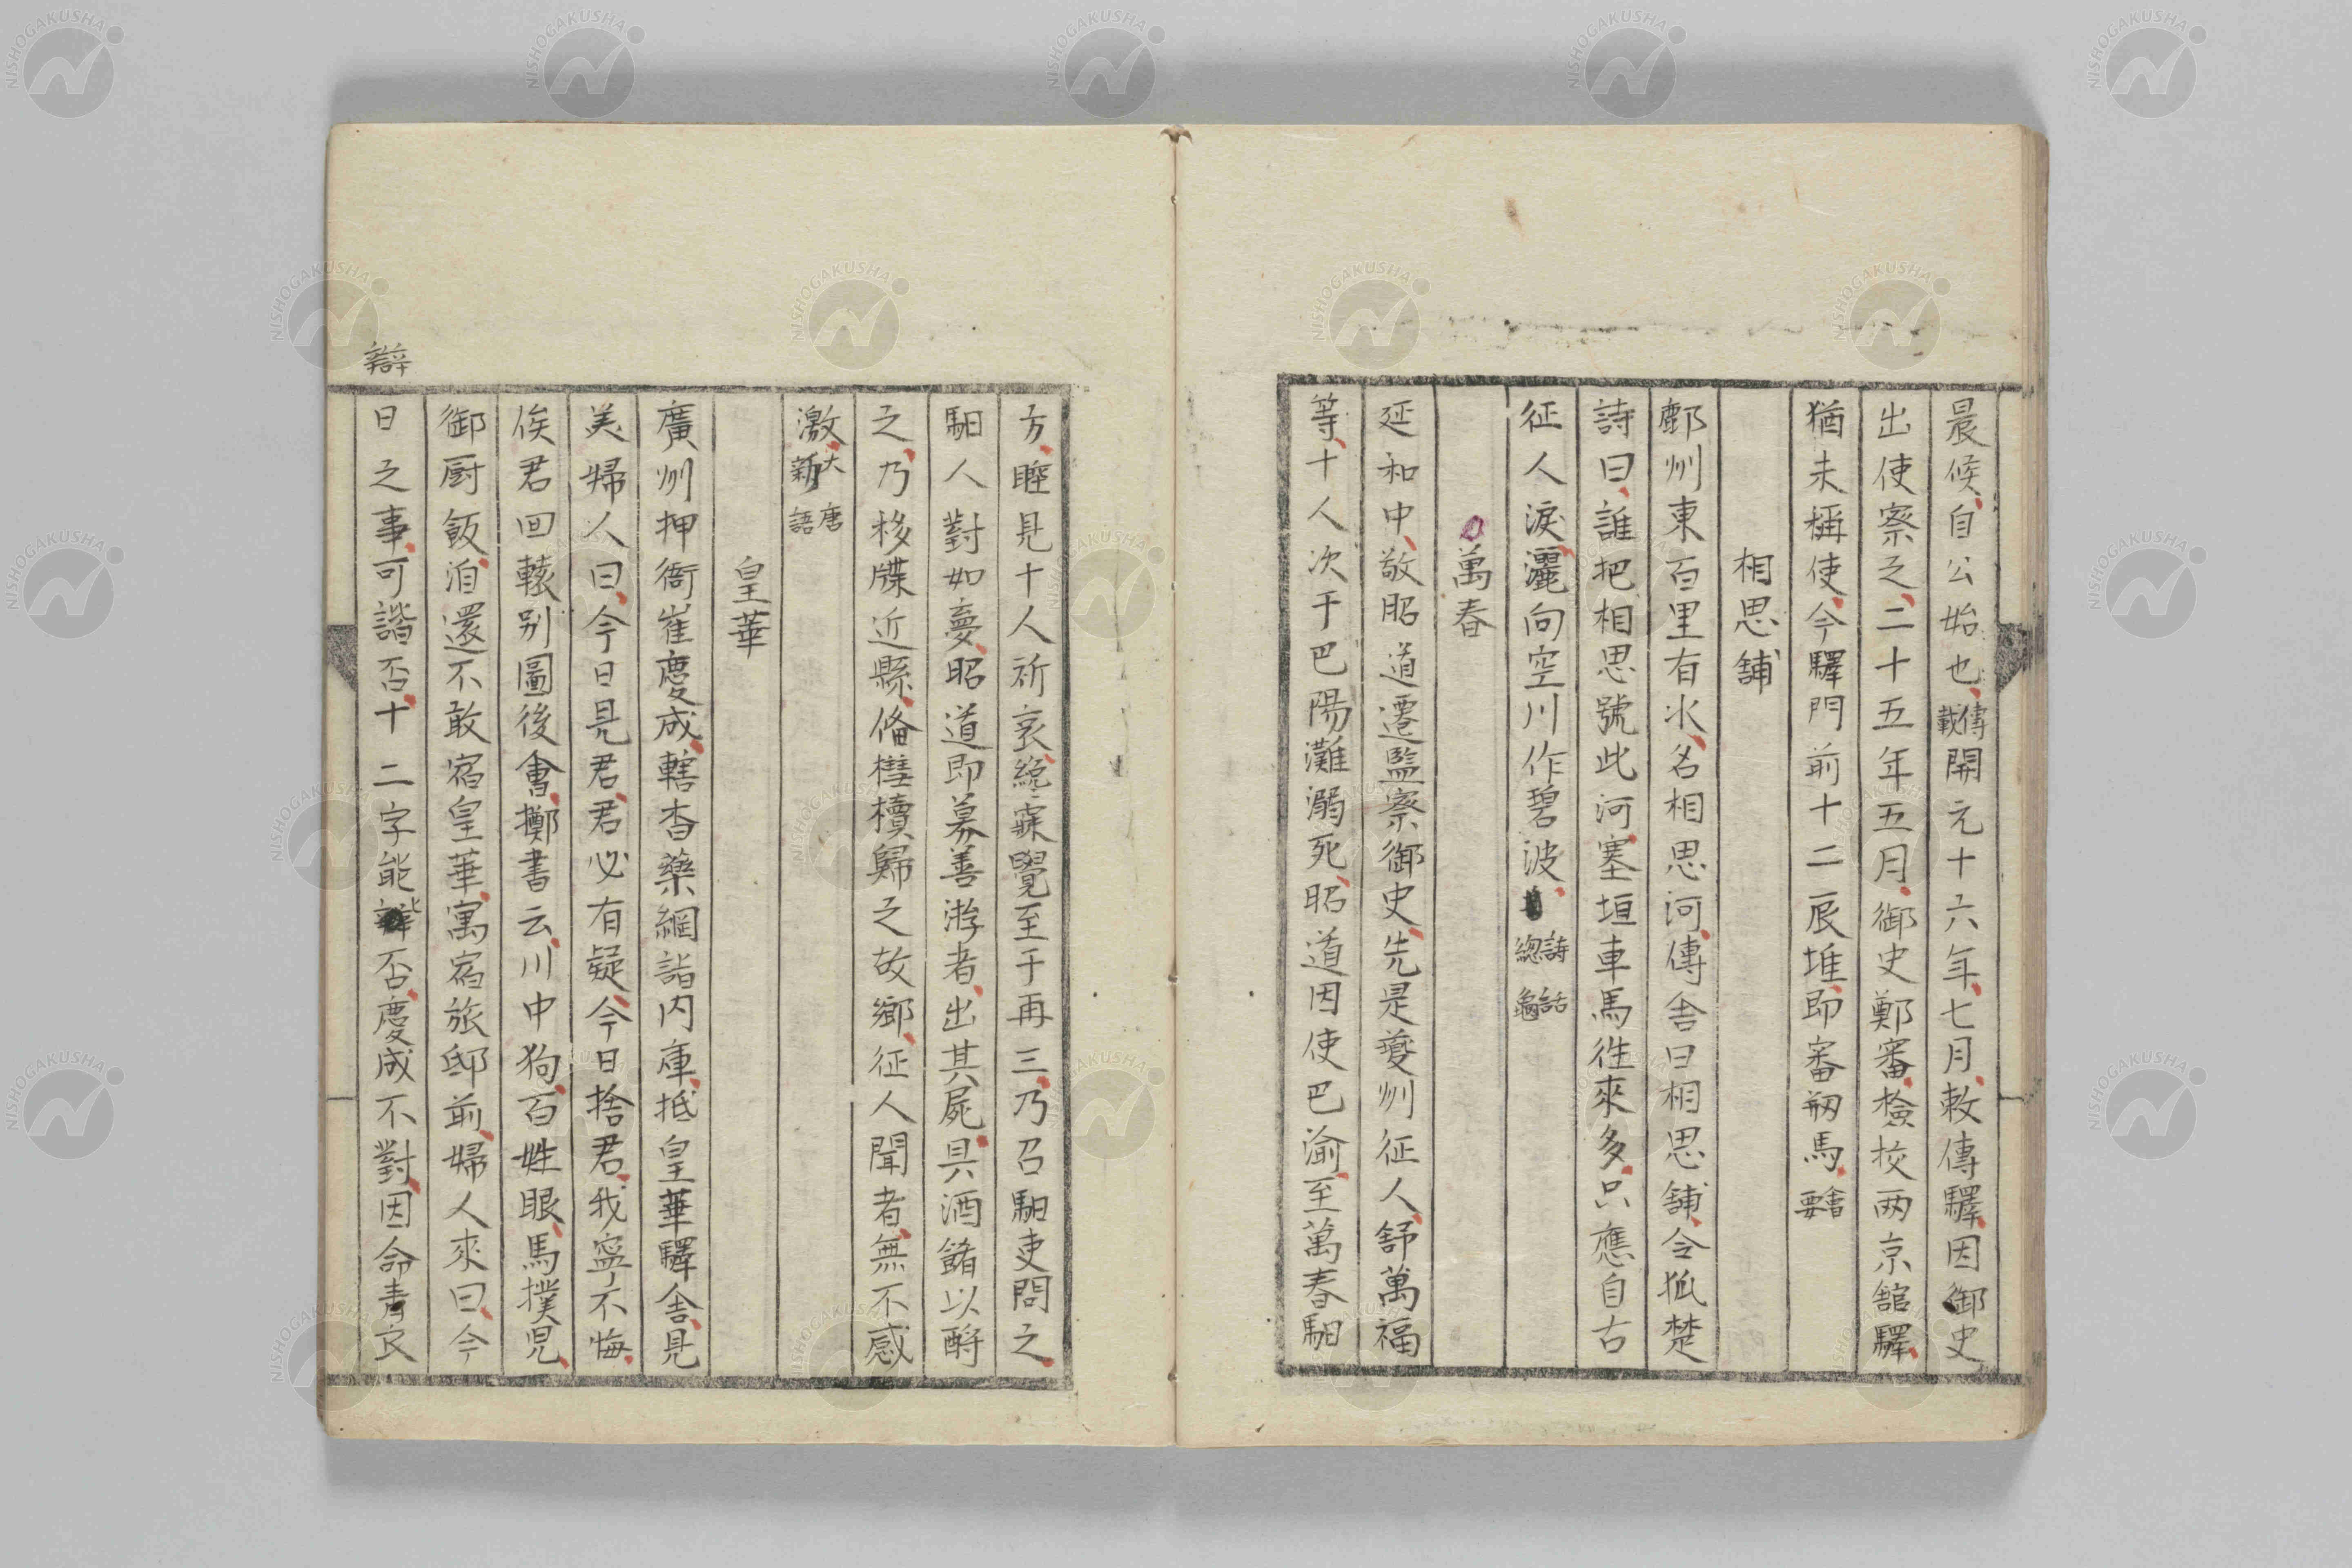 晨候自公始也傳載開元十六年七月敕傳驛因御史
出使察之二十五年五月御史鄭審檢校两京舘驛
猶未稱使今驛門前十二辰堆即審刱馬會要
相思舖
鄜州東百里有水名相思河傳舍曰相思舖令狐楚
詩曰誰把相思號此河塞垣車馬徃來多只應自古
征人淚灑向空川作碧波詩話總龜
萬春
延和中敬昭道遷監察御史先是夔州征人舒萬福
等十人次于巴陽灘溺死昭道因使巴渝至萬春馹
方睡見十人祈哀纔寐覺至于再三乃召馹吏問之
馹人對如夢昭道即募善游者出其屍具酒餚以酹
之乃移牒近縣俻槥櫝歸之故鄉征人聞者無不感
激大唐新語
皇華
廣州押衙崔慶成轄杳藥綱詣内庫抵皇華驛舍見
美婦人曰今日見君君必有疑今日捨君我寍不悔
俟君回轅别圖後會擲書云川中狗百姓眼馬撲児
御厨飯洎還不敢宿皇華寓宿旅邸前婦人來曰今
辯
日之事可諧否十二字能辯否慶成不對因命青衣
NISHOGAKUSHA